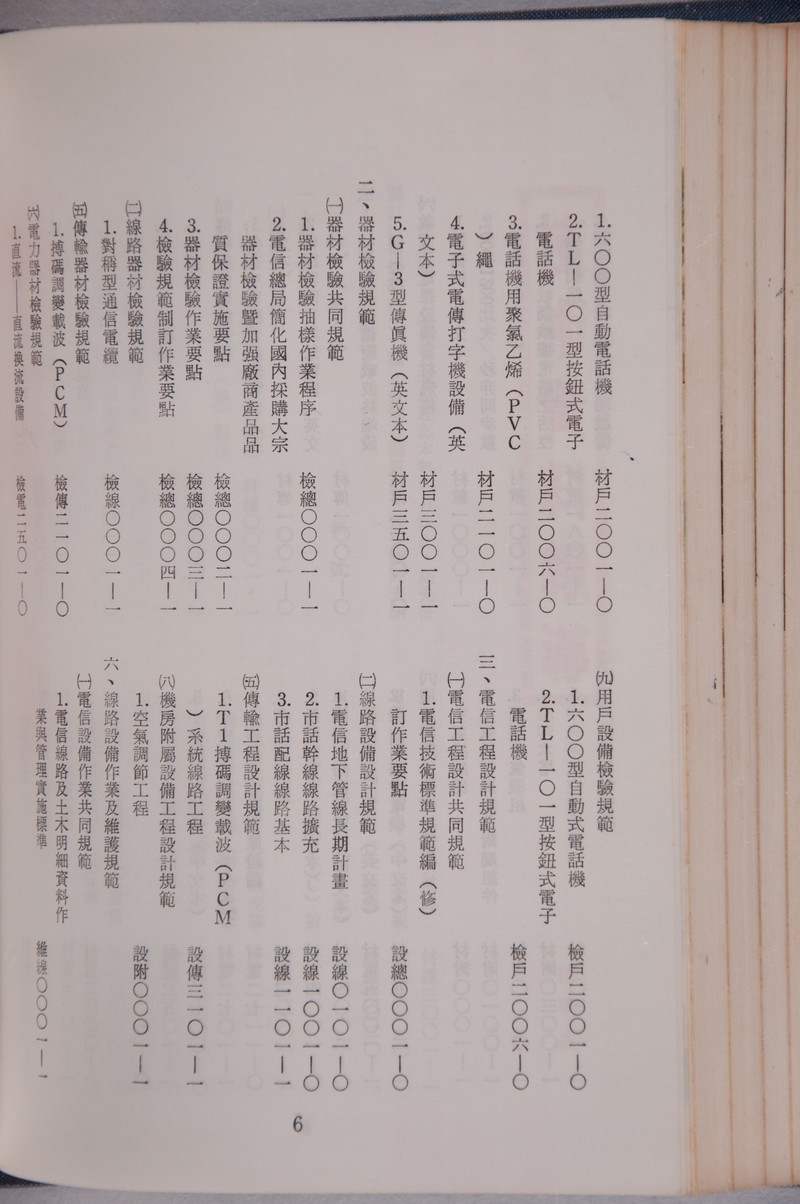 1.六〇〇型自動電話機　材戶二〇〇一—〇
2.TL—一〇一型按鈕式電子
電話機　材戶二〇〇六—〇
3.電話機用聚氯乙烯（PVC
）繩　材戶二一〇一—〇
4.電子式電傳打字機設備（英
文本）　材戶三〇〇一—一
5.G—3型傳眞機（英文本）　材戶三五〇一—一
二、器材檢驗規範
㈠器材檢驗共同規範
1.器材檢驗抽樣作業程序　檢總〇〇〇一—一
2.電信總局簡化國內採購大宗
器材檢驗暨加强廠商產品品
質保證實施要點　檢總〇〇〇二—一
3.器材檢驗作業要點　檢總〇〇〇三—一
4.檢驗規範制訂作業要點　檢總〇〇〇四—一
㈡線路器材檢驗規範
1.對稱型通信電纜　檢線〇〇〇一—一
㈤傳輸器材檢驗規範
1.搏碼調變載波（PCM）　檢傳二一〇一—〇
㈥電力器材檢驗規範
1.直流——直流換流設備　檢電二五〇一—〇
㈨用戶設備檢驗規範
1.六〇〇型自動式電話機　檢戶二〇〇一—〇
2.TL—一〇一型按鈕式電子
電話機　檢戶二〇〇六—〇
三、電信工程設計規範
㈠電信工程設計共同規範
1.電信技術標準規範編（修）
訂作業要點　設總〇〇〇一—〇
㈡線路設備設計規範
1.電信地下管線長期計畫　設線〇一〇一—〇
2.市話幹線線路擴充　設線一〇〇一—〇
3.市話配線線路基本　設線一一〇一—一
㈤傳輸工程設計規範
1.T1搏碼調變載波（PCM
）系統線路工程　設傳三一〇一—一
㈧機房附屬設備工程設計規範
1.空氣調節工程　設附〇〇〇一—一
六、線路設備作業及維護規範
㈠電信設備作業共同規範
1.電信線路及土木明細資料作
業與管理實施標準　維線〇〇〇一—一
6